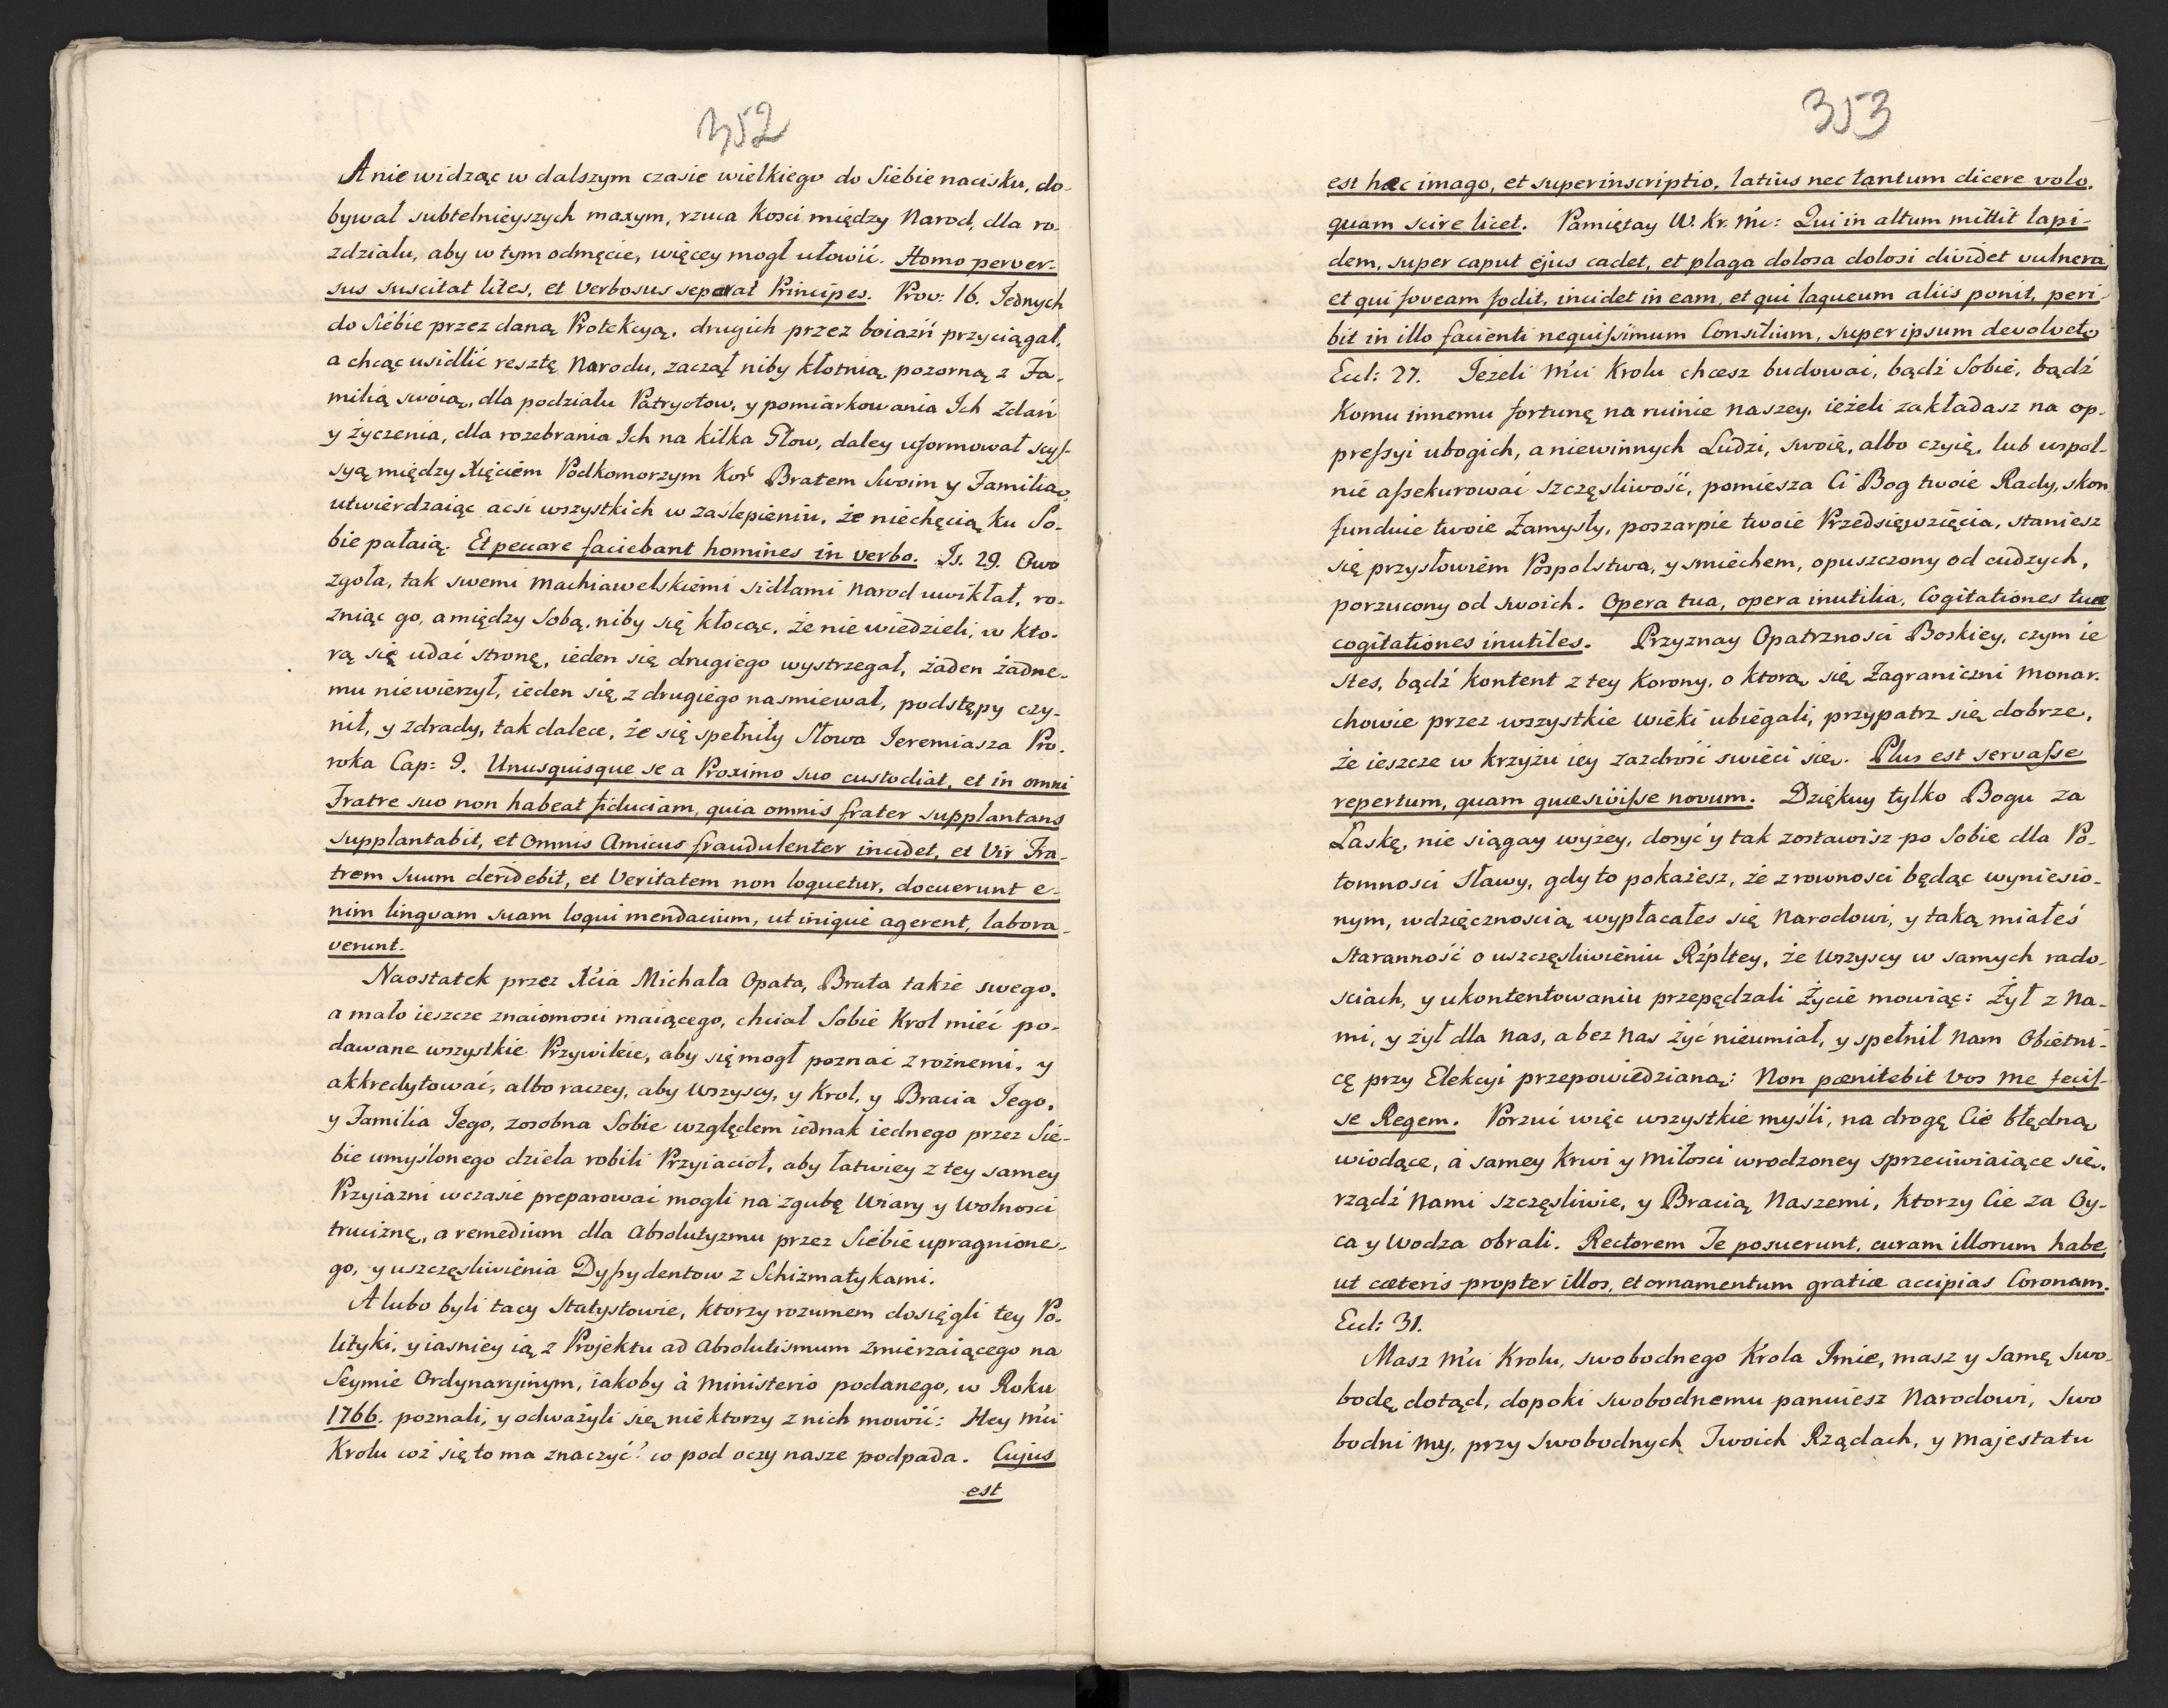 352
A nie widząc w dalszym czasie wielkiego do Siebie nacisku, do-
bywał subtelnieyszych maxym, rzuca Kosci między Narod, dla ro-
zdziału, aby w tym odmęcie, więcey mogł ułowić. Homo perver-
sus suscitat lites, et verbosus separat Principes. Prov: 16. Jednych
do Siebie przez daną Protekcyą, drugich przez boiaźń przyciągał,
a chcąc usidlić resztę Narodu, zaczął niby kłotnią pozorną z Fa-
milią swoią, dla podziału Patryotow, y pomiarkowania Ich Zdań
y życzenia, dla rozebrania Ich na kilka Głow, daley uformował scys-
syą między Xięciem Podkomorzym Kor. Bratem Swoim y Familią,
utwierdzaiąc acsi wszystkich w zaslepieniu, że niechęcią ku So-
bie pałaią. Et peccare faciebant homines in verbo. Is. 29. Owo
zgoła, tak swemi Machiawelskiemi sidłami Narod uwikłał, ro-
zniąc go, a między Sobą, niby się kłocąc, że nie wiedzieli, w kto-
rą się udać stronę, ieden się drugiego wystrzegał, żaden żadne-
mu niewierzył, ieden się z drugiego nasmiewał, podstępy czy-
nił, y zdrady, tak dalece, że się spełniły Słowa Jeremiasza Pro-
roka Cap: 9. Unusquisque se a Proximo suo custodiat, et in omni
Fratre suo non habeat fiduciam, quia omnis frater supplantans
supplantabit, et Omnis Amicus fraudulenter incidet, et Vir Fra-
trem suum deridebit, et Veritatem non loquetur, docuerunt e-
nim linguam suam loqui mendacium, ut inique agerent, labora-
verunt.
Naostatek przez Xcia Michała Opata, Brata także swego,
a mało ieszcze znaiomosci maiącego, chciał Sobie Krol mieć po-
dawane wszystkie Przywileie, aby się mogł poznać z rożnemi, y
akkredytować, albo raczey, aby wszyscy, y Krol, y Bracia Jego,
y Familia Jego, zosobna Sobie względem iednak iednego przez Sie-
bie umyślonego dzieła robili Przyiacioł, aby łatwiey z tey samey
Przyiazni wczasie preparować mogli na zgubę Wiary y Wolnosci
truciznę, a remedium dla Absolutyzmu przez Siebie upragnione-
go, y uszczęsliwienia Dyssydentow z Schizmatykami.
A lubo byli tacy Statystowie, ktorzy rozumem dosięgli tey Po-
lityki, y iasniey ią z Projektu ad Absolutismum zmierzaiącego na
Seymie Ordynaryinym, iakoby à Ministerio podanego, w Roku
1766. poznali, y odważyli się niektorzy z nich mowić: Hey M'ci
Krolu coż się to ma znaczyć? co pod oczy nasze podpada. Cujus
est
353
est hæc imago, et superinscriptio, latius nec tantum dicere volo,
quam scire licet. Pamiętay W. Kr. Mć: Qui in altum mittit lapi-
dem, super caput ejus cadet, et plaga dolosa dolosi dividet vulnera
et qui foveam fodit, incidet in eam, et qui laqueum aliis ponit, peri-
bit in illo facienti nequissimum Consilium, super ipsum devolvetr
Eccl: 27. Jeżeli M'ci Krolu chcesz budować, bądź Sobie, bądź
Komu innemu fortunę na ruinie naszey, ieżeli zakładasz na op-
pressyi ubogich, a niewinnych Ludzi, swoię, albo czyię, lub wspol-
nie assekurować szczęsliwość, pomiesza Ci Bog twoie Rady, skon
funduie twoie Zamysły, poszarpie twoie Przedsięwzięcia, staniesz
się przysłowiem Pospolstwa, y smiechem, opuszczony od cudzych,
porzucony od swoich. Opera tua, opera inutilia, Cogitationes tuæ
cogitationes inutiles. Przyznay Opatrznosci Boskiey, czym ie
stes, bądź kontent z tey Korony, o ktorą się Zagraniczni Monar-
chowie przez wszystkie wieki ubiegali, przypatrz się dobrze,
że ieszcze w krzyżu iey zazdrość swieci się. Plus est servasse
repertum, quam quæsivisse novum. Dziękuy tylko Bogu za
Łaskę, nie siągay wyżey, dosyć y tak zostawisz po Sobie dla Po-
tomnosci Sławy, gdy to pokażesz, że z rownosci będąc wyniesio-
nym, wdzięcznoscią wypłacałes się Narodowi, y taką miałeś
Staranność o uszczęsliwieniu Rzpltey, że wszyscy w samych rado-
sciach, y ukontentowaniu przepędzali Życie mowiąc: Żył z Na-
mi, y żył dla Nas, a bez Nas żyć nieumiał, y spełnił Nam Obietni-
cę przy Elekcyi przepowiedzianą: Non pœnitebit vos me fecis-
se Regem. Porzuć więc wszystkie myśli, na drogę Cie błędną
wiodące, a samey krwi y miłosci wrodzoney sprzeciwiaiące się,
rządź Nami szczęsliwie, y Bracią Naszemi, ktorzy Cie za Oy-
ca y Wodza obrali. Rectorem Te posuerunt, curam illorum habe
ut cæteris propter illos, et ornamentum gratiæ accipias Coronam.
Eccl: 31.
Masz M'ci Krolu, swobodnego Krola Imie, masz y samę Swo-
bodę dotąd, dopoki swobodnemu panuiesz Narodowi, Swo
bodni My, przy swobodnych Twoich Rządach, y Majestatu